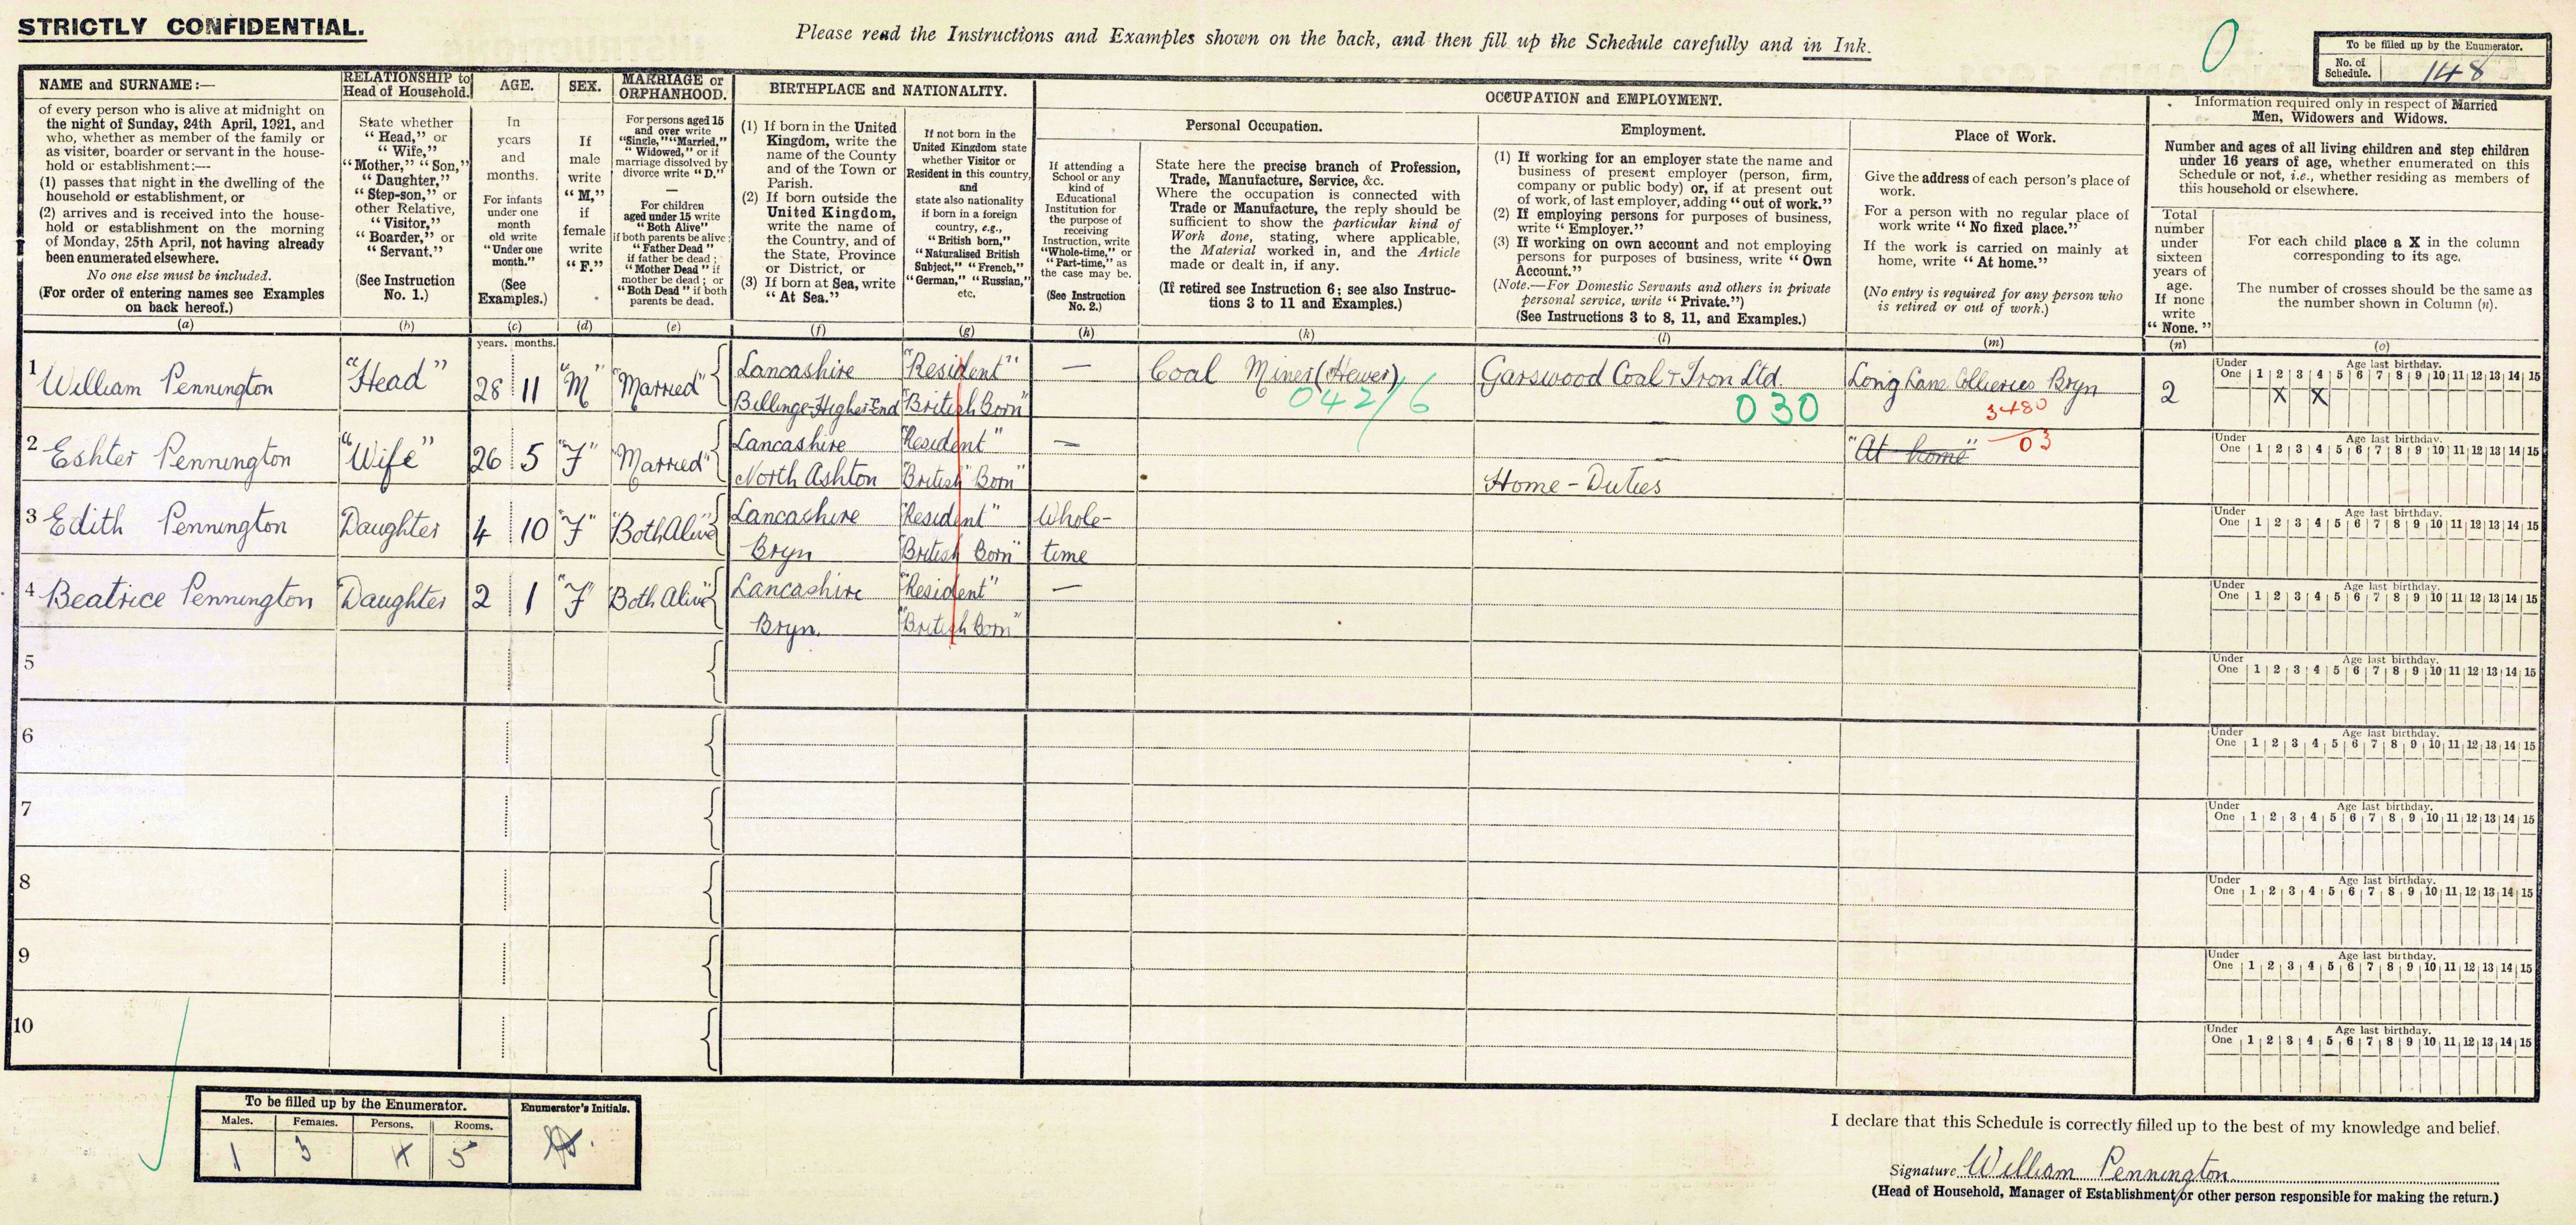 STRICTLY CONFIDENTIAL.
Please read the Instructions and Examples shown on the back, and then fill up the Schedule carefully and in Ink.
0
To be filled up by the Enumerator.
No. of Schedule. 148
NAME and SURNAME:—
of every person who is alive at midnight on
the night of Sunday, 24th April, 1921, and
who, whether as member of the family or
as visitor, boarder or servant in the house-
hold or establishment:—
(1) passes that night in the dwelling of the
household or establishment, or
(2) arrives and is received into the house-
hold or establishment on the morning
of Monday, 25th April, not having already
been enumerated elsewhere.
No one else must be included.
(For order of entering names see Examples
on back hereof.)
(a)
RELATIONSHIP to
Head of Household.
State whether
"Head," or
"Wife,"
"Mother," "Son,"
"Daughter,"
"Step-son," or
other Relative,
"Visitor,"
"Boarder," or
"Servant."
(See Instruction
No. 1.)
(b)
AGE.
In
years
and
months.
For infants
under one
month
old write
"Under one
month."
(See
Examples.)
(c)
SEX.
If
male
write
"M,"
if
female
write
"F."
(d)
MARRIAGE or
ORPHANHOOD.
For persons aged 15
and over write
"Single," "Married,"
"Widowed," or if
marriage dissolved by
divorce write "D."
—
For children
aged under 15 write
"Both Alive"
if both parents be alive;
"Father Dead"
if father be dead;
"Mother Dead" if
mother be dead; or
"Both Dead" if both
parents be dead.
(e)
BIRTHPLACE and NATIONALITY.
(1) If born in the United
Kingdom, write the
name of the County
and of the Town or
Parish.
(2) If born outside the
United Kingdom,
write the name of
the Country, and of
the State, Province
or District, or
(3) If born at Sea, write
"At Sea."
(f)
If not born in the
United Kingdom state
whether Visitor or
Resident in this country,
and
state also nationality
if born in a foreign
country, e.g.,
"British born,"
"Naturalised British
Subject," "French,"
"German," "Russian,"
etc.
(g)
OCCUPATION and EMPLOYMENT.
Personal Occupation.
If attending a
School or any
kind of
Educational
Institution for
the purpose of
receiving
Instruction, write
"Whole-time," or
"Part-time," as
the case may be.
(See Instruction
No. 2.)
(h)
State here the precise branch of Profession,
Trade, Manufacture, Service, &c.
Where the occupation is connected with
Trade or Manufacture, the reply should be
sufficient to show the particular kind of
Work done, stating, where applicable,
the Material worked in, and the Article
made or dealt in, if any.
(If retired see Instruction 6; see also Instruc-
tions 3 to 11 and Examples.)
(k)
Employment.
(1) If working for an employer state the name and
business of present employer (person, firm,
company or public body) or, if at present out
of work, of last employer, adding "out of work."
(2) If employing persons for purposes of business,
write "Employer."
(3) If working on own account and not employing
persons for purposes of business, write "Own
Account."
(Note.—For Domestic Servants and others in private
personal service, write "Private.")
(See Instructions 3 to 8, 11, and Examples.)
(l)
Place of Work.
Give the address of each person's place of
work.
For a person with no regular place of
work write "No fixed place."
If the work is carried on mainly at
home, write "At home."
(No entry is required for any person who
is retired or out of work.)
(m)
Information required only in respect of Married
Men, Widowers and Widows.
Number and ages of all living children and step children
under 16 years of age, whether enumerated on this
Schedule or not, i.e., whether residing as members of
this household or elsewhere.
Total
number
under
sixteen
years of
age.
If none
write
"None."
(n)
For each child place a X in the column
corresponding to its age.
The number of crosses should be the same as
the number shown in Column (n).
(o)
years. months.
1 William Pennington "Head" 28 11 "M" "Married" Lancashire "Resident" — Coal Miner (Hewer) Garswood Coal & Iron Ltd. Long Lane Collieries Bryn 2
Billinge-Higher End "British Born" 042/6 030 3480
Under One 1 2 3 4 5 6 7 8 9 10 11 12 13 14 15
Age last birthday.
X X
2 Eshter Pennington "Wife" 26 5 "F" "Married" Lancashire "Resident" — — "At home" 03
North Ashton "British Born" Home-Duties
Under One 1 2 3 4 5 6 7 8 9 10 11 12 13 14 15
Age last birthday.
3 Edith Pennington Daughter 4 10 "F" "Both Alive" Lancashire "Resident" Whole-
Bryn "British Born" time
Under One 1 2 3 4 5 6 7 8 9 10 11 12 13 14 15
Age last birthday.
4 Beatrice Pennington Daughter 2 1 "F" "Both Alive" Lancashire "Resident" —
Bryn. "British Born"
Under One 1 2 3 4 5 6 7 8 9 10 11 12 13 14 15
Age last birthday.
5
Under One 1 2 3 4 5 6 7 8 9 10 11 12 13 14 15
Age last birthday.
6
Under One 1 2 3 4 5 6 7 8 9 10 11 12 13 14 15
Age last birthday.
7
Under One 1 2 3 4 5 6 7 8 9 10 11 12 13 14 15
Age last birthday.
8
Under One 1 2 3 4 5 6 7 8 9 10 11 12 13 14 15
Age last birthday.
9
Under One 1 2 3 4 5 6 7 8 9 10 11 12 13 14 15
Age last birthday.
10
Under One 1 2 3 4 5 6 7 8 9 10 11 12 13 14 15
Age last birthday.
To be filled up by the Enumerator.
Males. Females. Persons. Rooms.
1 3 4 5
Enumerator's Initials.
I declare that this Schedule is correctly filled up to the best of my knowledge and belief.
Signature William Pennington
(Head of Household, Manager of Establishment or other person responsible for making the return.)